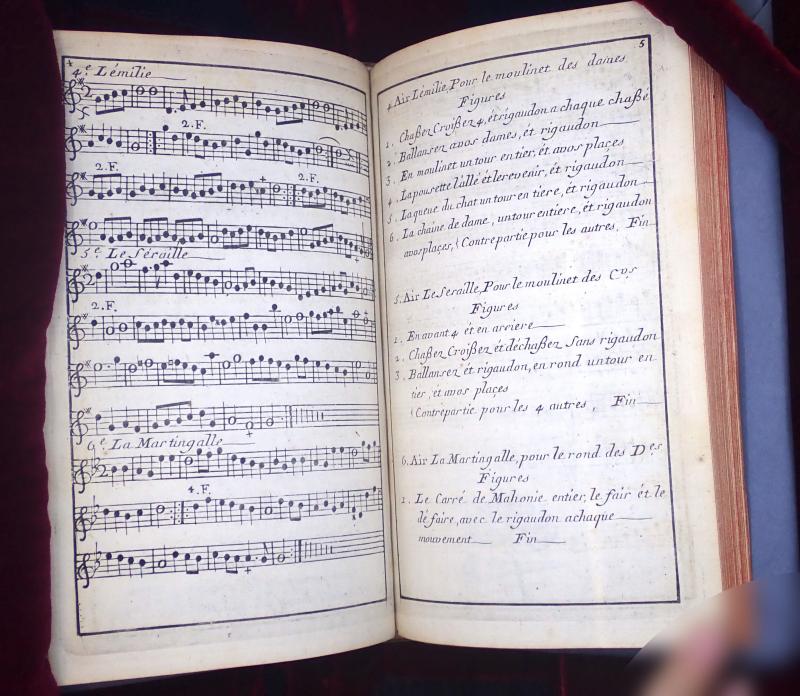 4
4.e Lémilie
2.F.
2.F.
2.F.
5.e Le Séraille
2.F.
6.e La Martingalle
4.F.
5
4. Air Lémilie, Pour le moulinet des dames
Figures
1. Chaßez Croißez 4, ét rigaudon a chaque chaßé
2. Ballansez avos dames, ét rigaudon
3. En moulinet un tour entier, ét avos places
4. La pousette l'allé ét lerevenir, ét rigaudon
5. La queue du chat un tour en tiere, ét rigaudon
6. La chaine de dame, un tour entiere, ét rigaudon
avos places, Contre partie pour les autres, Fin
5. Air Le Seraille, Pour le moulinet des C.vs
Figures
1. En avant 4 ét en arriere
2. Chaßez Croißez ét déchaßez sans rigaudon
3. Ballansez ét rigaudon, en rond un tour en
tier, ét avos places
Contrepartie pour les 4 autres, Fin
6. Air La Martingalle, pour le rond des D.es
Figures
1. Le Carré de Mahonie entier, le fair ét le
défaire, avec le rigaudon achaque
mouvement Fin